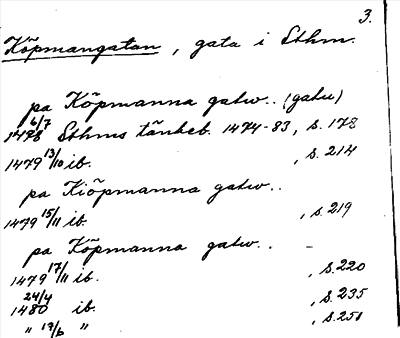 3.
Köpmangatan, gata i Sthm.
pa Köpmanna gatw.. (gatu)
1478 6/7 Sthms tänkeb. 1474-83, s. 178
1479 13/10 ib. , s. 214
pa Kiöpmanna gatw..
1479 15/11 ib. , s. 219
pa Köpmanna gatw.. -
1479 17/11 ib. , s. 220
1480 24/4 ib. , s. 235
" 17/6 " , s. 251